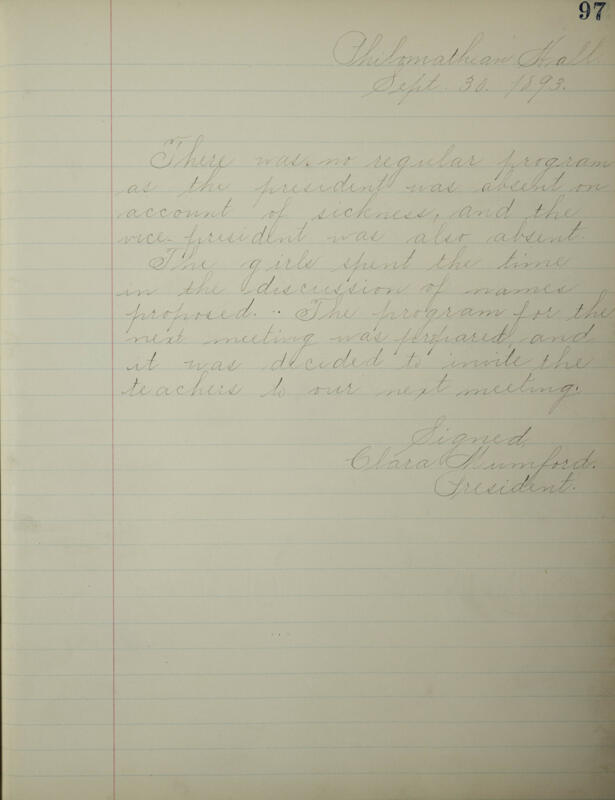 97
Philomathean Hall
Sept. 30. 1893.
There was no regular program
as the president was absent on
account of sickness, and the
vice-president was also absent.
The girls spent the time
in the discussion of names
proposed. The program for the
next meeting was prepared, and
it was decided to invite the
teachers to our next meeting.
Signed,
Clara Mumford.
President.